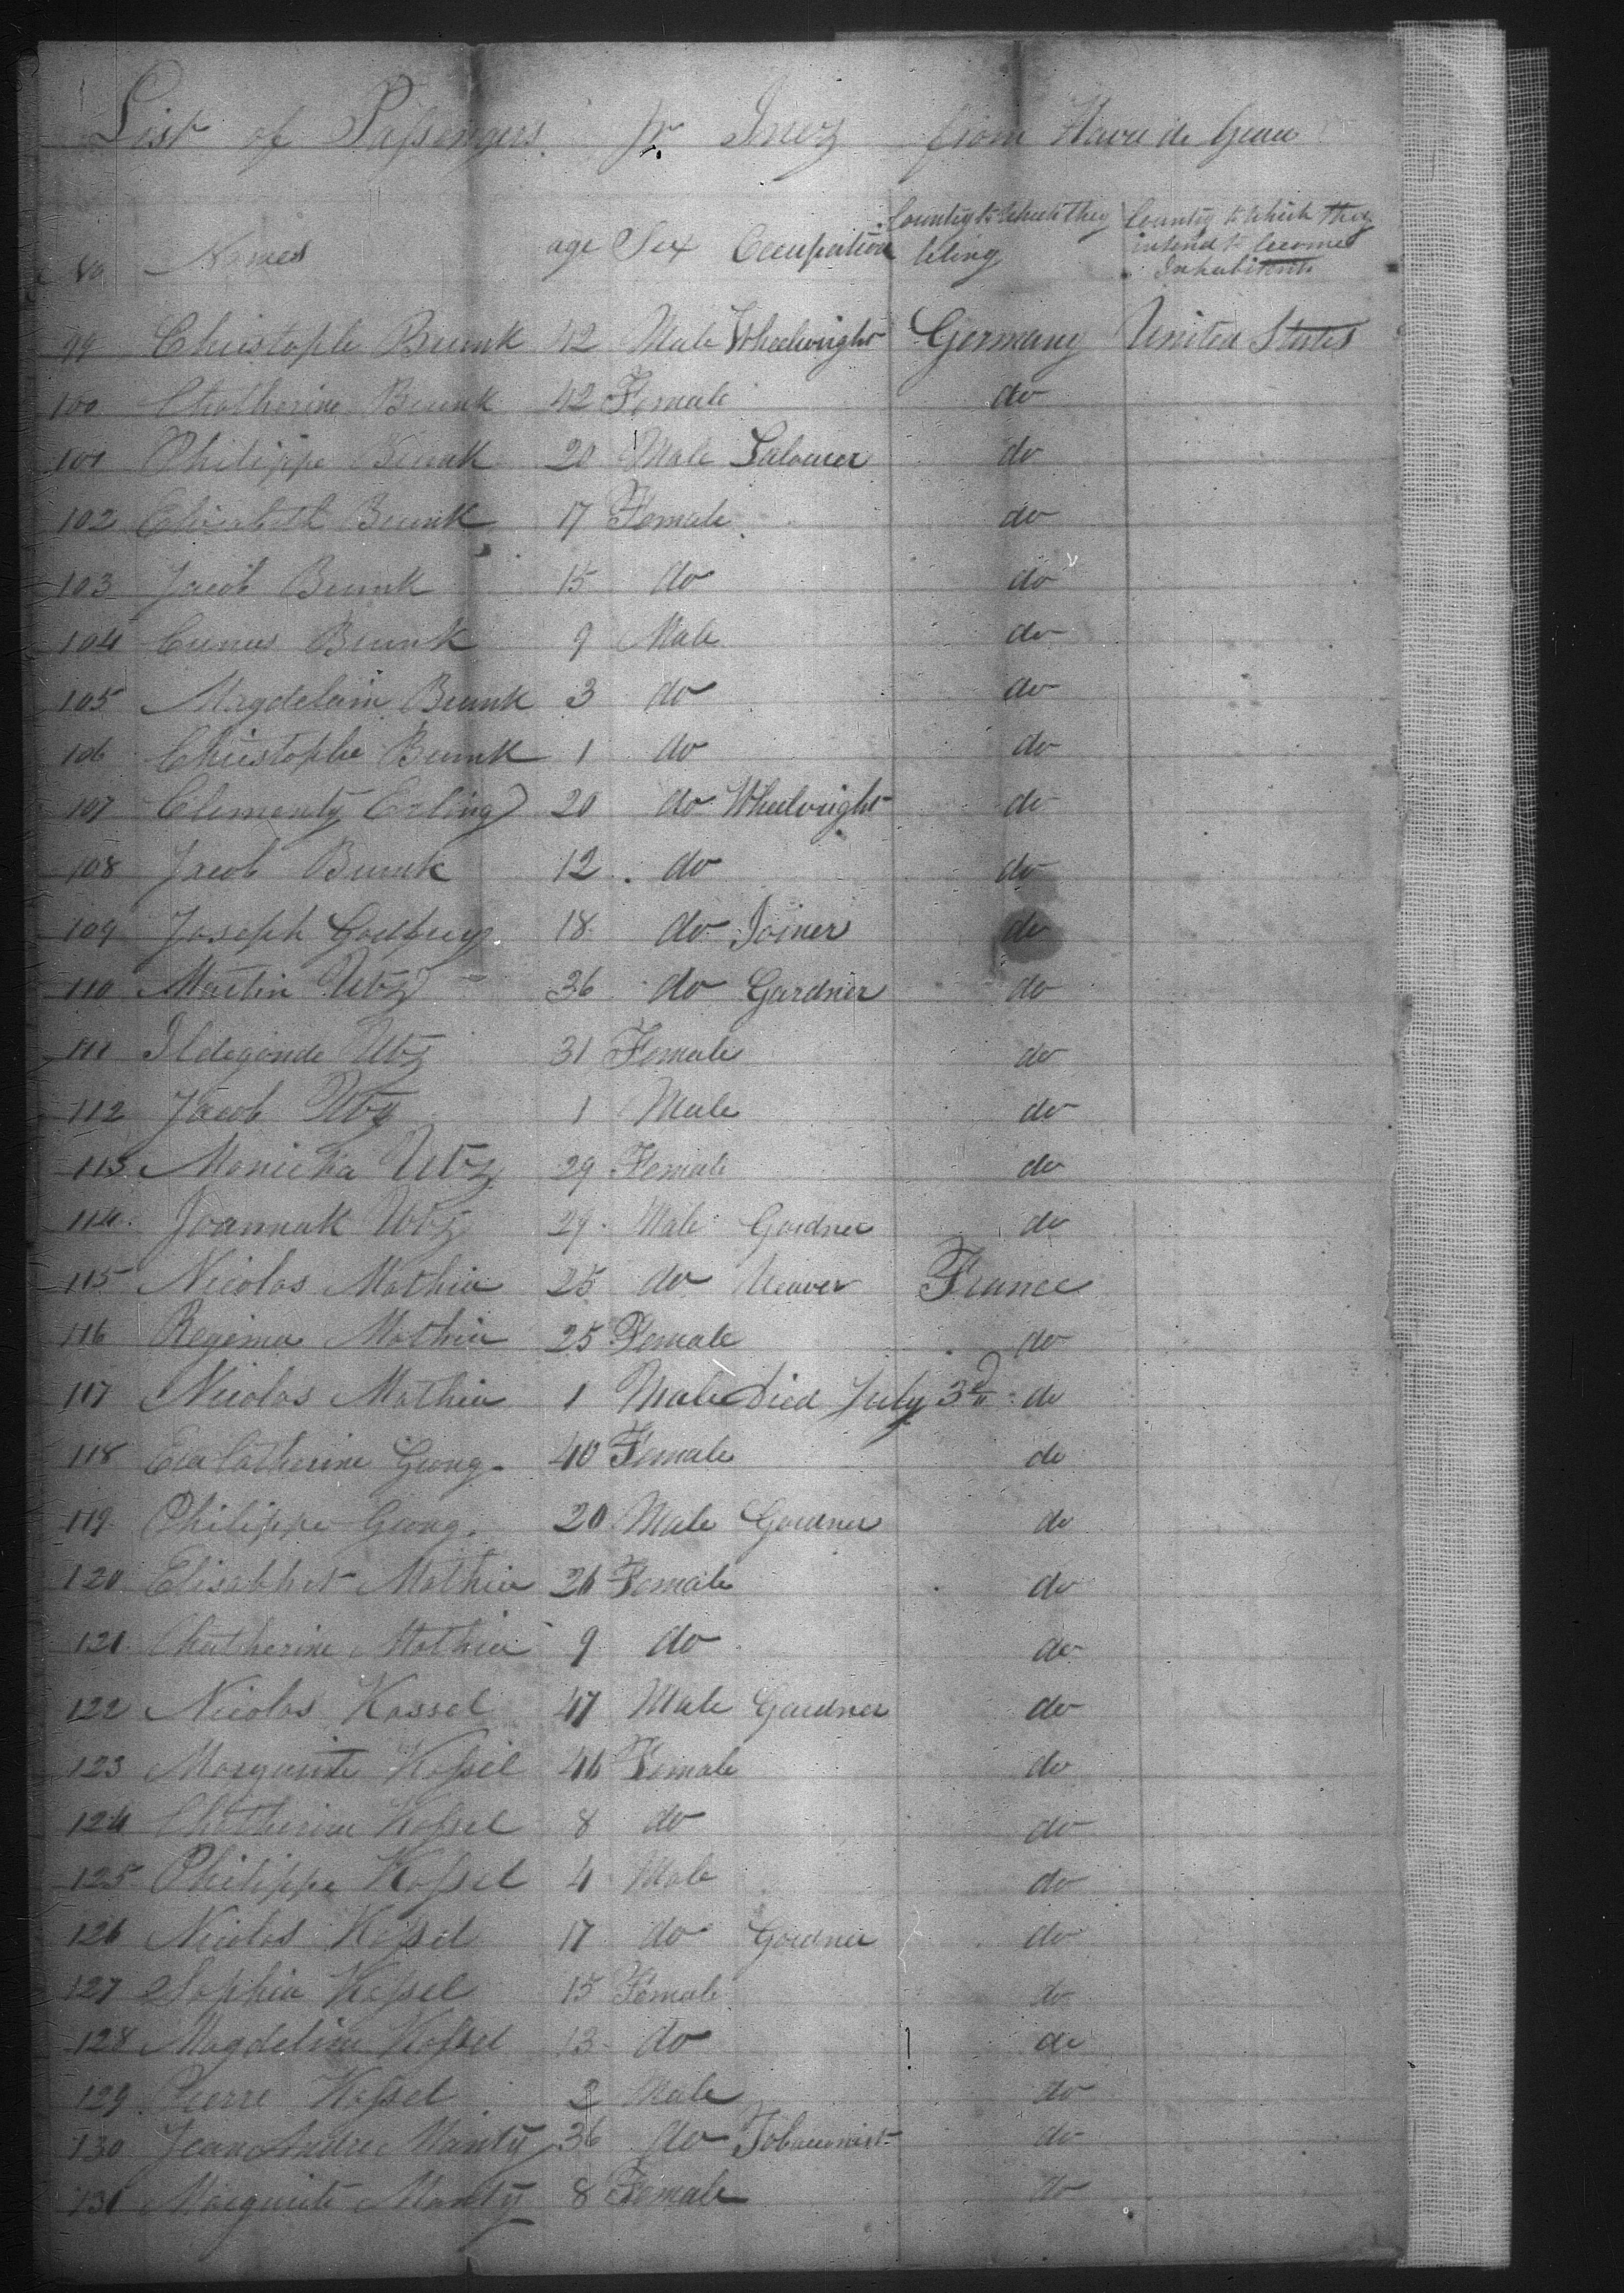 List of Passengers pr Inez from Havre de Grace
No Names age Sex Occupation Country to which they belong Country to which they intend to become Inhabitants
99 Christophe Brunk 42 Male Wheelwright Germany United States
100 Chatherine Brunk 42 Female do
101 Philippe Brunk 20 Male Labourer do
102 Elisabeth Brunk 17 Female do
103 Jacob Brunk 15 do do
104 Brunk 9 Male do
105 Magdelain Brunk 3 do do
106 Christophe Brunk 1 do do
107 Clementz Erling 20 do Wheelwright do
108 Jacob Brunk 12 do do
109 Joseph Godfrey 18 do Joiner do
110 Martin Utz 36 do Gardner do
111 Ildegonde Utz 31 Female do
112 Jacob Utz 1 Male do
113 Monicka Utz 29 Female do
114 Utz 29 Male Gardner do
115 Nicolas Mathia 25 do Weaver France
116 Regina Mathia 25 Female do
117 Nicolas Mathia 1 Male Died July 3d do
118 Eva Catherine Georg 40 Female do
119 Philippe Georg 20 Male Gardner do
120 Elisabhet Mathia 26 Female do
121 Chatherine Mathia 9 do do
122 Nicolas Kassel 47 Male Gardner do
123 Marguerite Kassel 46 Female do
124 Chatherine Kassel 8 do do
125 Philippe Kassel 4 Male do
126 Nicolas Kassel 17 do Gardner do
127 Sophia Kassel 15 Female do
128 Magdeline Kassel 13 do do
129 Pierre Kassel 2 Male do
130 Jean Andre Manty 36 do Tobacconist do
131 Marguerite Manty 8 Female do